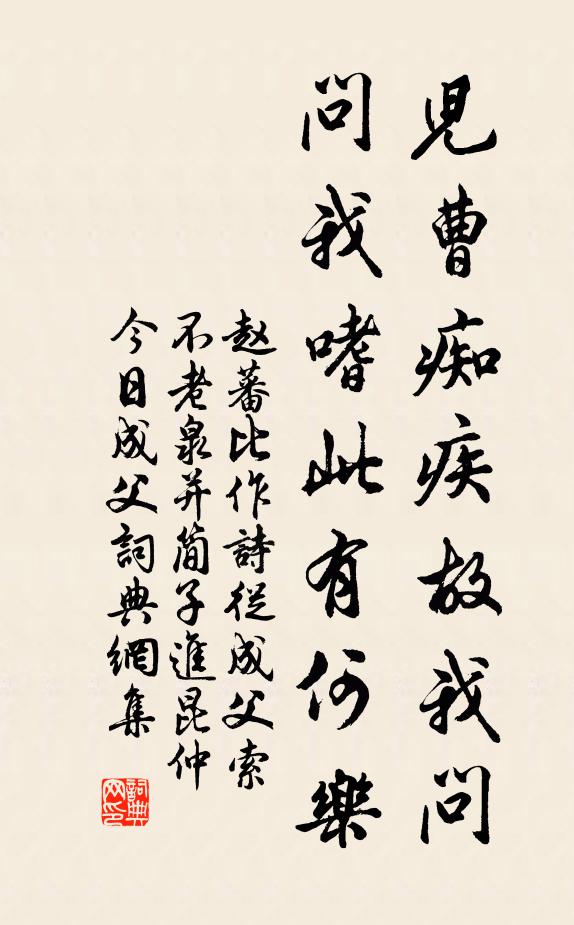 兒曹痴疾故我問
問我嗜此有何樂
赵蕃比作詩從成父索
不老泉并简子進昆仲
今日成父詞典網集
詞典网印